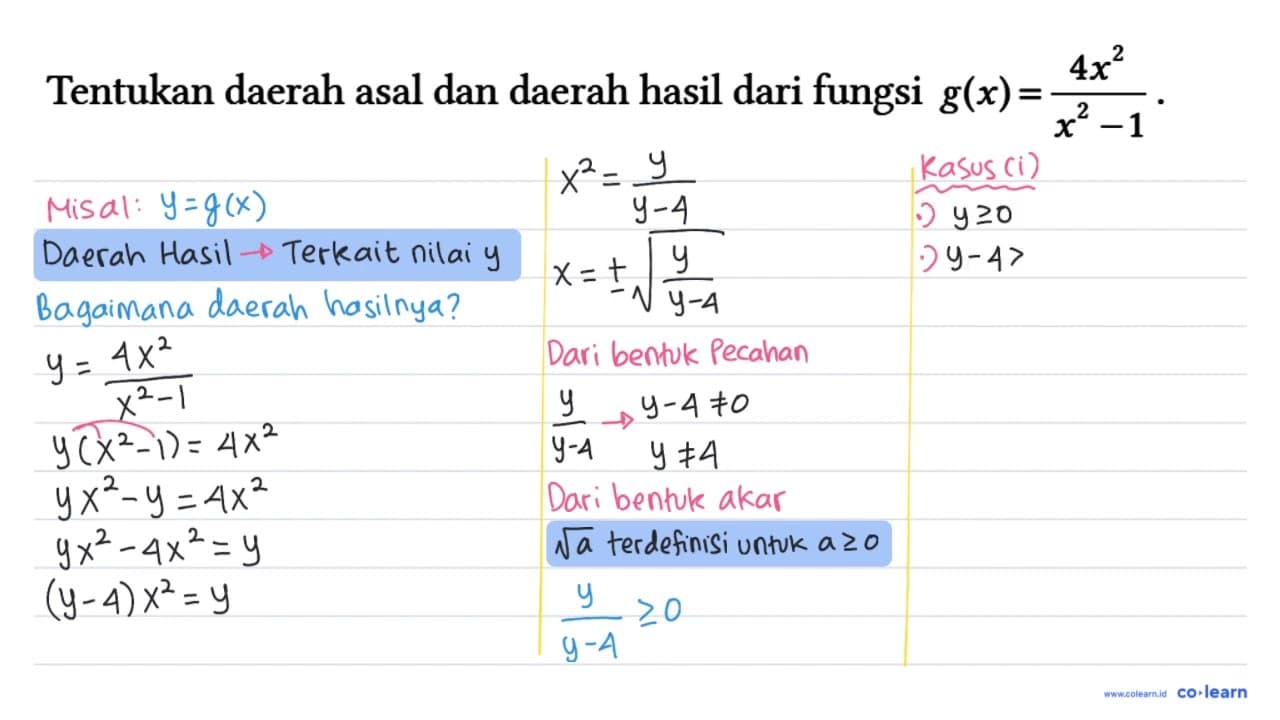 Tentukan daerah asal dan daerah hasil dari fungsi g(x) = 4x²/(x² − 1) .
Misal: y = g(x)
Daerah Hasil → Terkait nilai y
Bagaimana daerah hasilnya?
y = 4x²/(x² − 1)
y(x² − 1) = 4x²
yx² − y = 4x²
yx² − 4x² = y
(y − 4)x² = y
x² = y/(y − 4)
x = ± √(y/(y − 4))
Dari bentuk Pecahan
y/(y − 4) → y − 4 ≠ 0
y ≠ 4
Dari bentuk akar
√a terdefinisi untuk a ≥ 0
y/(y − 4) ≥ 0
Kasus (i)
•) y ≥ 0
•) y − 4 >
www.colearn.id co·learn